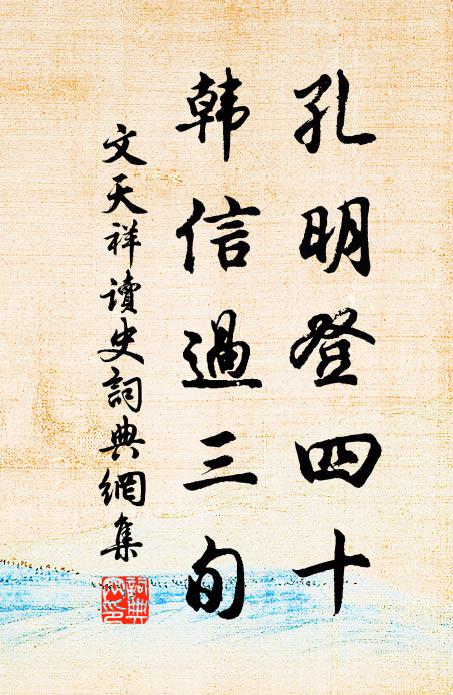 孔明登四十
韓信過三旬
文天祥讀史詞典網集